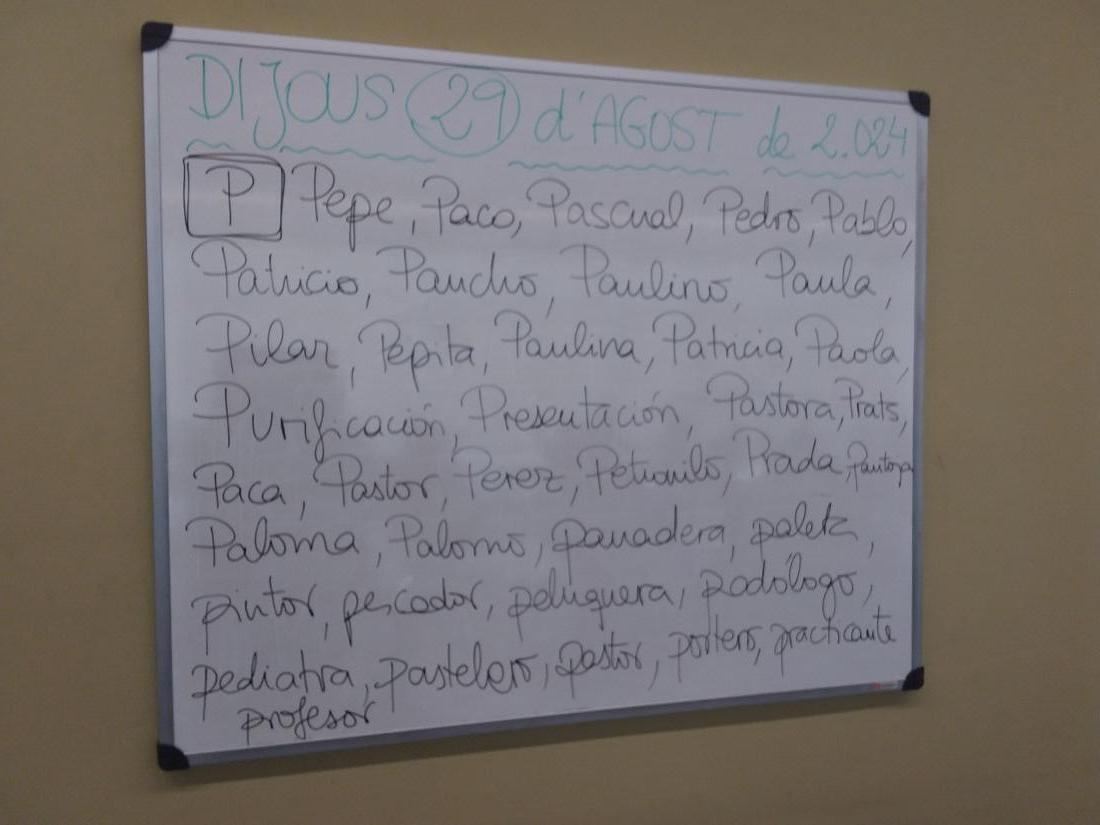 DIJOUS 29 d'AGOST de 2.024
P Pepe, Paco, Pascual, Pedro, Pablo,
Patricio, Pancho, Paulino, Paula,
Pilar, Pepita, Paulina, Patricia, Paola,
Purificación, Presentación, Pastora, Prats,
Paca, Pastor, Perez, Petronilo, Prada, Pantoja
Paloma, Palomo, panadera, paleta,
pintor, pescador, peluquera, podólogo,
pediatra, pastelero, pastor, portero, practicante
profesor